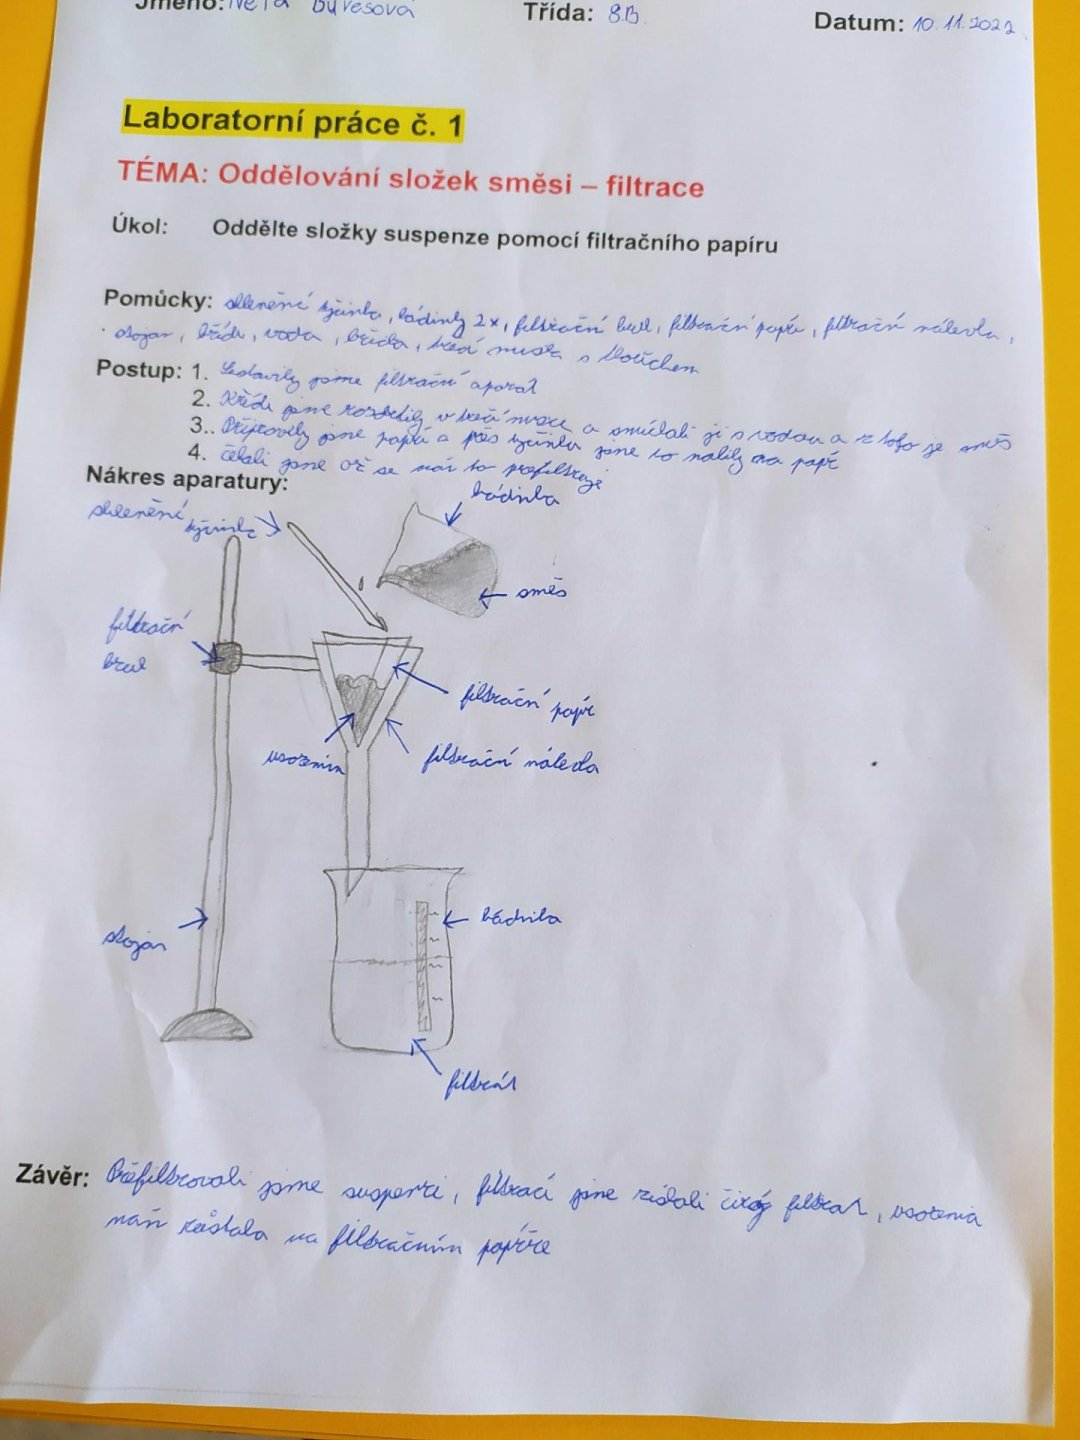 Jméno: Třída: 8.B Datum: 10.11.2022
Laboratorní práce č. 1
TÉMA: Oddělování složek směsi – filtrace
Úkol: Oddělte složky suspenze pomocí filtračního papíru
Pomůcky: skleněné tyčinka, kádinky 2x, filtrační kruh, filtrační papír, filtrační nálevka,
stojan, křída, voda, třecí miska s tloučkem
Postup: 1. Sestavily jsme filtrační aparát
2. Křídu jsme rozdrtily v třecí misce a smíchali ji s vodou a z toho je směs
3.. Připravily jsme papír a přes tyčinku jsme to nalily na papír
4. čekali jsme až se nám to přefiltruje
Nákres aparatury:
kádinka
skleněné
tyčinka
směs
filtrační
kruh
filtrační papír
usazenina
filtrační nálevka
kádinka
stojan
filtrát
Závěr: Přefiltrovali jsme suspenzi, filtrací jsme získali čirý filtrát, usazenina
nám zůstala na filtračním papíře